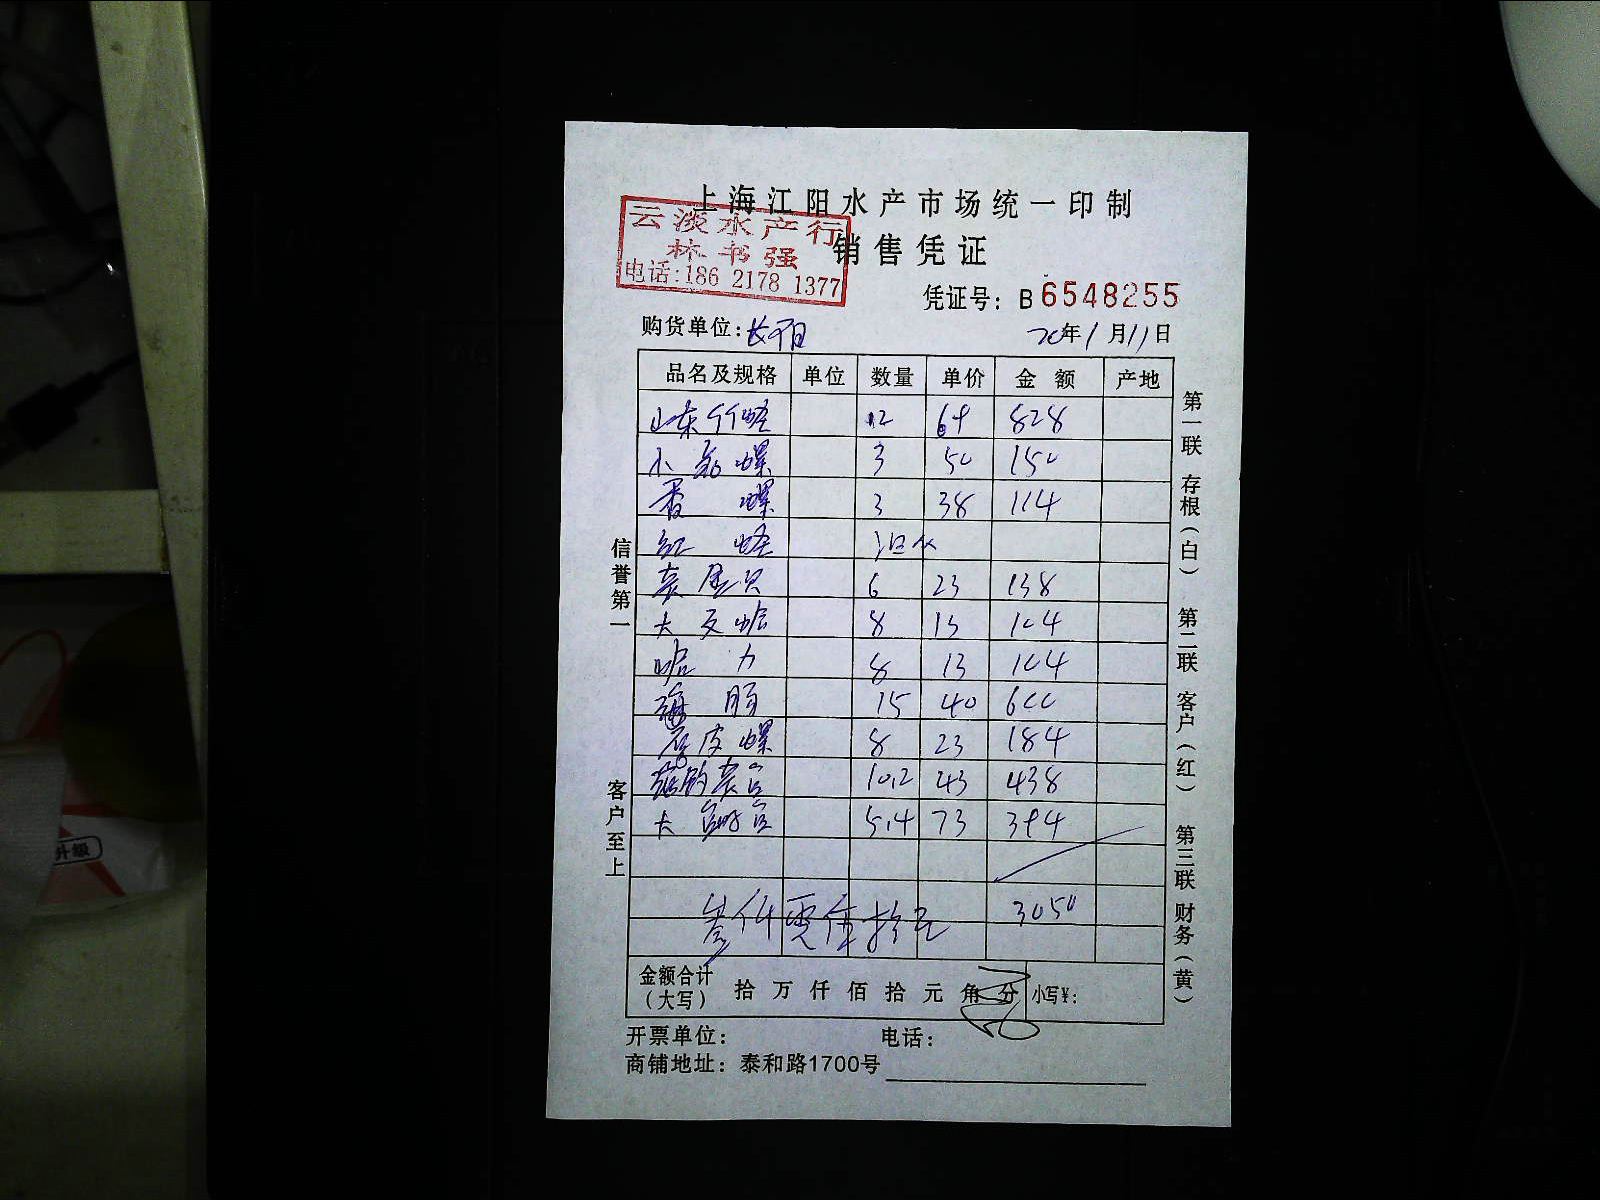 上海江阳水产市场统一印制
云淡水产行
林书强
电话:186 2178 1377
销售凭证
凭证号: B 6548255
购货单位: 长阳
20年1月11日
品名及规格 单位 数量 单价 金额 产地
山东竹蛏 12 69 828
小 螺 3 50 150
香螺 3 38 114
红蛏 退水
6 23 138
大文蛤 8 13 104
蛤力 8 13 104
海肠 15 40 600
皮螺 8 23 184
10.2 43 438
大 5.4 73 394
叁仟零伍拾元 3050
金额合计(大写) 拾万仟佰拾元角分 小写¥:
开票单位: 电话:
商铺地址: 泰和路1700号
信誉第一
客户至上
第一联 存根(白) 第二联 客户(红) 第三联 财务(黄)
升级